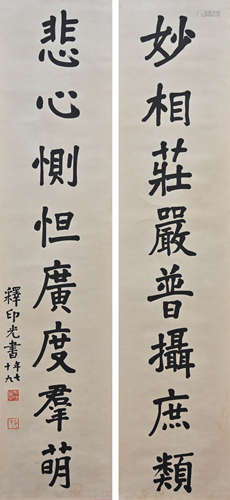 妙相莊嚴普攝庶類
悲心惻怛廣度羣萌
釋印光書
年七十九